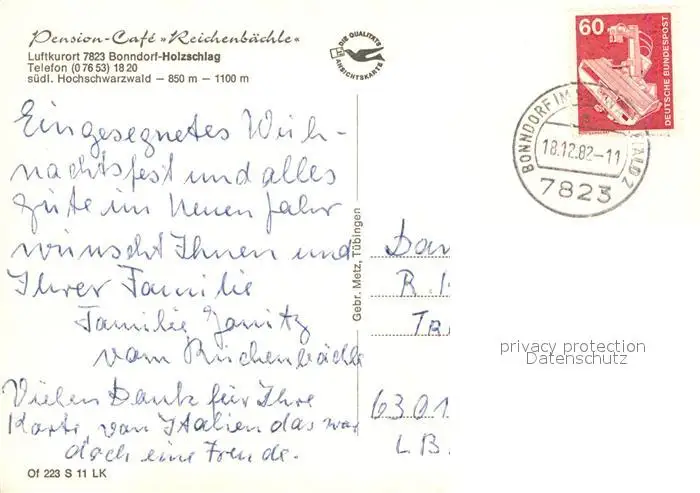 Pension-Café »Reichenbächle«
Luftkurort 7823 Bonndorf-Holzschlag
Telefon (0 76 53) 18 20
südl. Hochschwarzwald – 850 m – 1100 m
DIE QUALITÄTS
ANSICHTSKARTE
60
DEUTSCHE BUNDESPOST
BONNDORF IM WALD 2
18.12.82-11
7823
Ein gesegnetes Weih-
nachtsfest und alles
Gute im Neuen Jahr
wünscht Ihnen und
Ihrer Familie
Familie Janitz
vom Reichenbächle
Vielen Dank für Ihre
Karte von Italien das war
doch eine Freude.
Gebr. Metz, Tübingen
R.
6301
privacy protection
Datenschutz
Of 223 S 11 LK